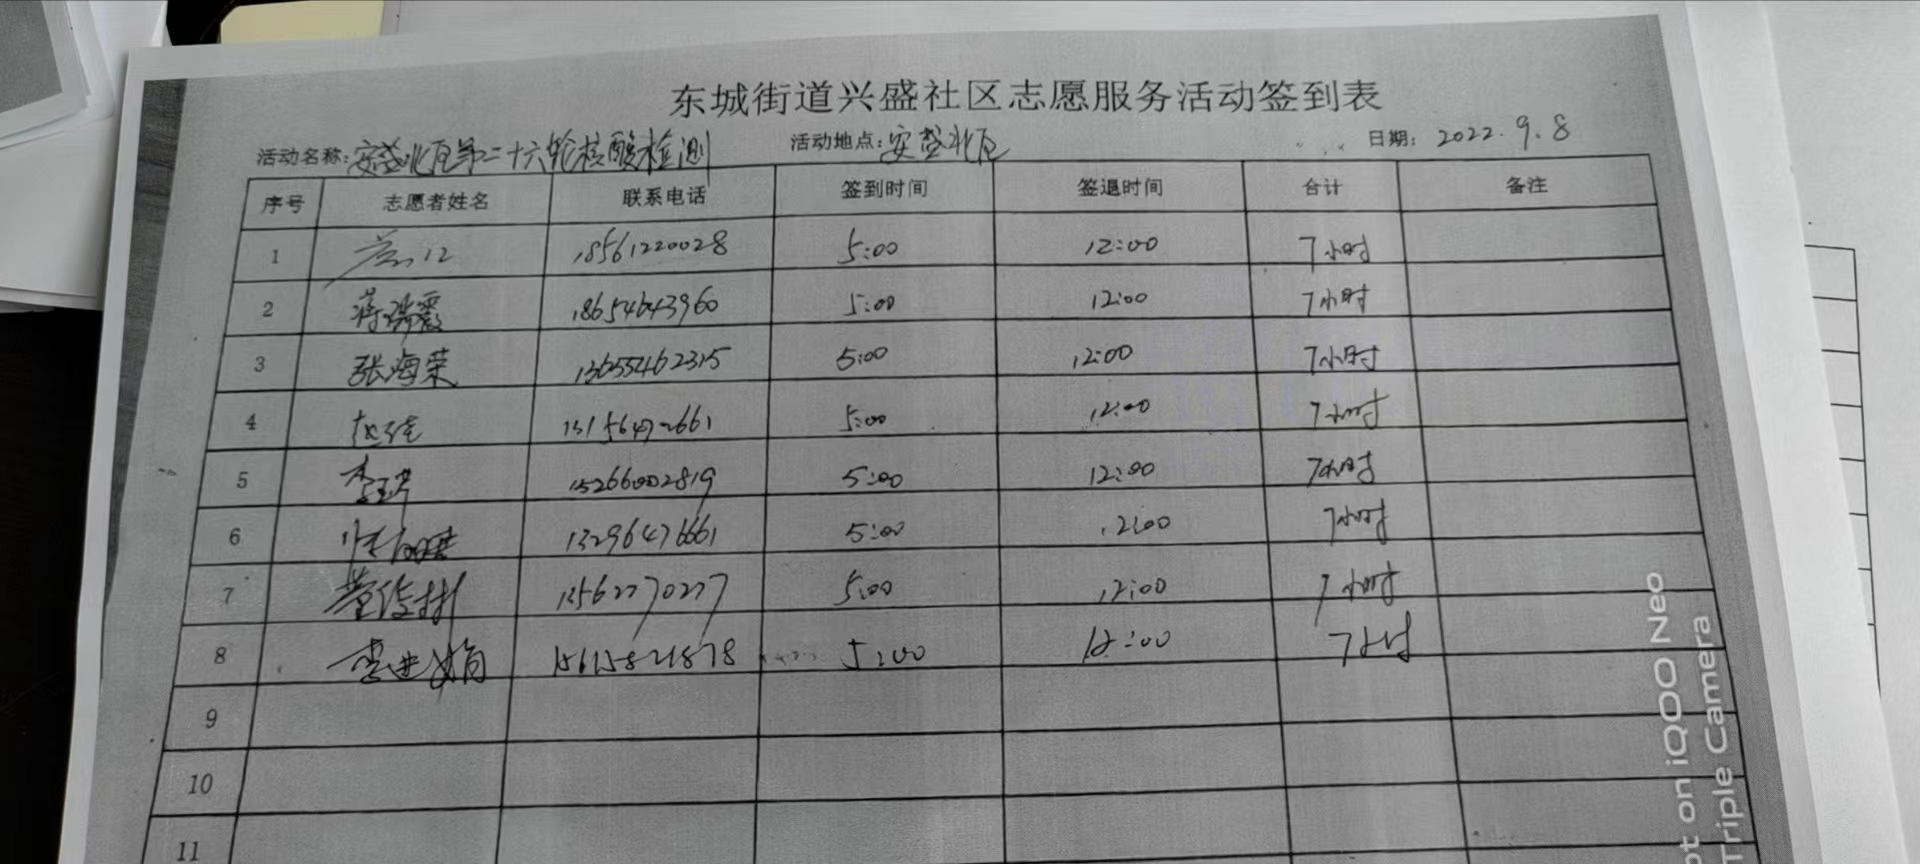 东城街道兴盛社区志愿服务活动签到表
活动名称:安盛北区第二十六轮核酸检测 活动地点:安盛北区 日期: 2022.9.8
序号 志愿者姓名 联系电话 签到时间 签退时间 合计 备注
1 18561220028 5:00 12:00 7小时
2 蒋瑞霞 18654643960 5:00 12:00 7小时
3 张海荣 13655462315 5:00 12:00 7小时
4 5:00 12:00 7小时
5 15266002819 5:00 12:00 7小时
6 13296476661 5:00 12:00 7小时
7 5:00 12:00 7小时
8 李进娟 15615821878 5:00 12:00 7小时
9
10
11
ot on iQOO Neo
Triple Camera